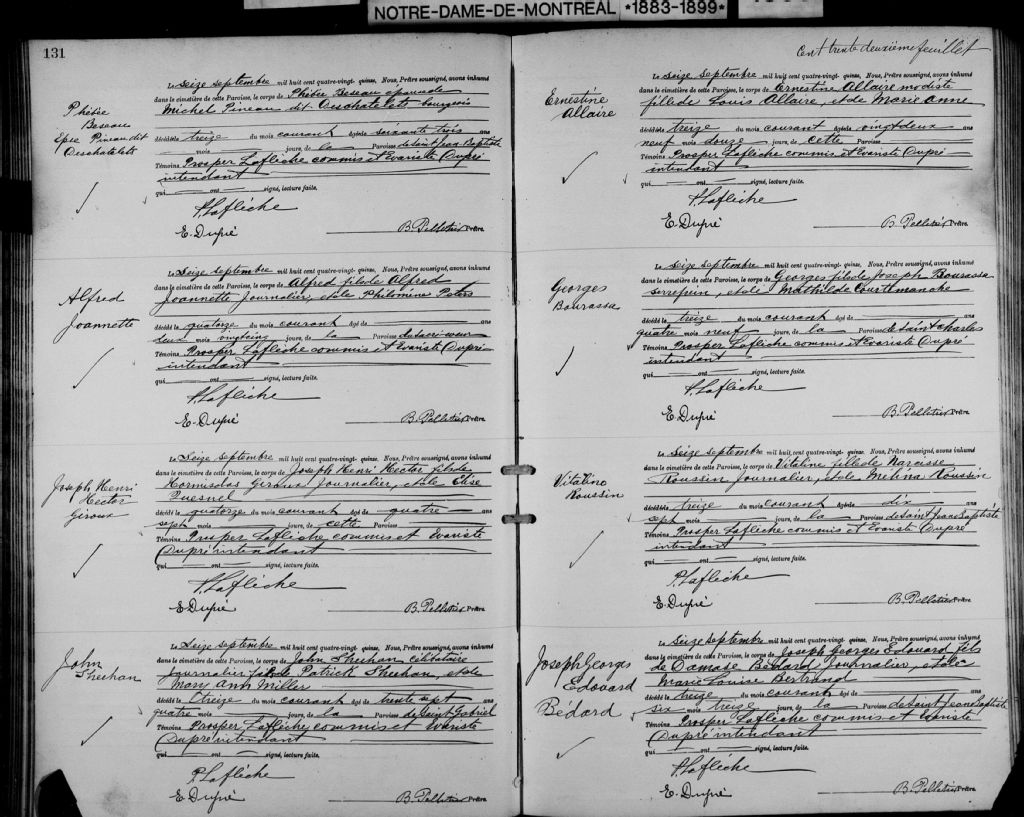 NOTRE-DAME-DE-MONTRÉAL *1883-1899*
131
Phébée
Beseau
Epse Pineau dit
Deschatelets
Le seize septembre mil huit cent quatre-vingt- quinze, Nous, Prêtre soussigné, avons inhumé
dans le cimetière de cette Paroisse, le corps de Phébée Beseau épouse de
Michel Pineau dit Deschatelets bourgeois
décédée le treize du mois courant âgée de soixante trois ans
mois jours, de la Paroisse de Saint Jean Baptiste
Témoins Prosper Laflèche commis et Evariste Dupré
intendant
qui ont signé, lecture faite.
P. Laflèche
E. Dupré B. Pelletier Prêtre.
Alfred
Joannette
Le Seize septembre mil huit cent quatre-vingt- quinze, Nous, Prêtre soussigné, avons inhumé
dans le cimetière de cette Paroisse, le corps de Alfred fils de Alfred
Joannette Journalier, et de Philomine Peters
décédé le quatorze du mois courant âgé de ans
deux mois vingt cinq jours, de la Paroisse du Sacré-Cœur
Témoins Prosper Laflèche commis et Evariste Dupré
intendant
qui ont signé, lecture faite.
P. Laflèche
E. Dupré B. Pelletier Prêtre.
Joseph Henri
Hector
Giroux
Le Seize septembre mil huit cent quatre-vingt- quinze, Nous, Prêtre soussigné, avons inhumé
dans le cimetière de cette Paroisse, le corps de Joseph Henri Hector fils de
Hormisdas Giroux Journalier, et de Elise
Quesnel
décédé le quatorze du mois courant âgé de quatre ans
sept mois jours, de cette Paroisse
Témoins Prosper Laflèche commis et Evariste
Dupré intendant
qui ont signé, lecture faite.
P. Laflèche
E. Dupré B. Pelletier Prêtre.
John
Sheehan
Le Seize septembre mil huit cent quatre-vingt- quinze, Nous, Prêtre soussigné, avons inhumé
dans le cimetière de cette Paroisse, le corps de John Sheehan célibataire
Journalier fils de Patrick Sheehan, et de
Mary Ann Miller
décédé le treize du mois courant âgé de trente sept ans
quatre mois jours, de la Paroisse de Saint Gabriel
Témoins Prosper Laflèche commis et Evariste
Dupré intendant
qui ont signé, lecture faite.
P. Laflèche
E. Dupré B. Pelletier Prêtre.
Cent trente deuxième feuillet
Ernestine
Allaire
Le seize septembre mil huit cent quatre-vingt- quinze, Nous, Prêtre soussigné, avons inhumé
dans le cimetière de cette Paroisse, le corps de Ernestine Allaire modiste
fille de Louis Allaire, et de Marie Anne
décédée le treize du mois courant âgée de vingt deux ans
neuf mois douze jours, de cette Paroisse
Témoins Prosper Laflèche commis et Evariste Dupré
intendant
qui ont signé, lecture faite.
P. Laflèche
E. Dupré B. Pelletier Prêtre.
Georges
Bourassa
Le seize septembre mil huit cent quatre-vingt- quinze, Nous, Prêtre soussigné, avons inhumé
dans le cimetière de cette Paroisse, le corps de Georges fils de Joseph Bourassa
serre frein, et de Mathilde Courtemanche
décédé le treize du mois courant âgé de ans
quatre mois neuf jours, de la Paroisse de Saint Charles
Témoins Prosper Laflèche commis et Evariste Dupré
intendant
qui ont signé, lecture faite.
P. Laflèche
E. Dupré B. Pelletier Prêtre.
Vitaline
Roussin
Le seize septembre mil huit cent quatre-vingt- quinze, Nous, Prêtre soussigné, avons inhumé
dans le cimetière de cette Paroisse, le corps de Vitaline fille de Narcisse
Roussin Journalier, et de Melina Roussin
décédée le treize du mois courant âgée de dix ans
sept mois jours, de la Paroisse de Saint Jean Baptiste
Témoins Prosper Laflèche commis et Evariste Dupré
intendant
qui ont signé, lecture faite.
P. Laflèche
E. Dupré B. Pelletier Prêtre.
Joseph Georges
Edouard
Bédard
Le Seize septembre mil huit cent quatre-vingt- quinze, Nous, Prêtre soussigné, avons inhumé
dans le cimetière de cette Paroisse, le corps de Joseph Georges Edouard fils
de Damase Bédard Journalier, et de
Marie Louise Bertrand
décédé le treize du mois courant âgé de ans
six mois treize jours, de la Paroisse de Saint Jean Baptiste
Témoins Prosper Laflèche commis et Evariste
Dupré intendant
qui ont signé, lecture faite.
P. Laflèche
E. Dupré B. Pelletier Prêtre.